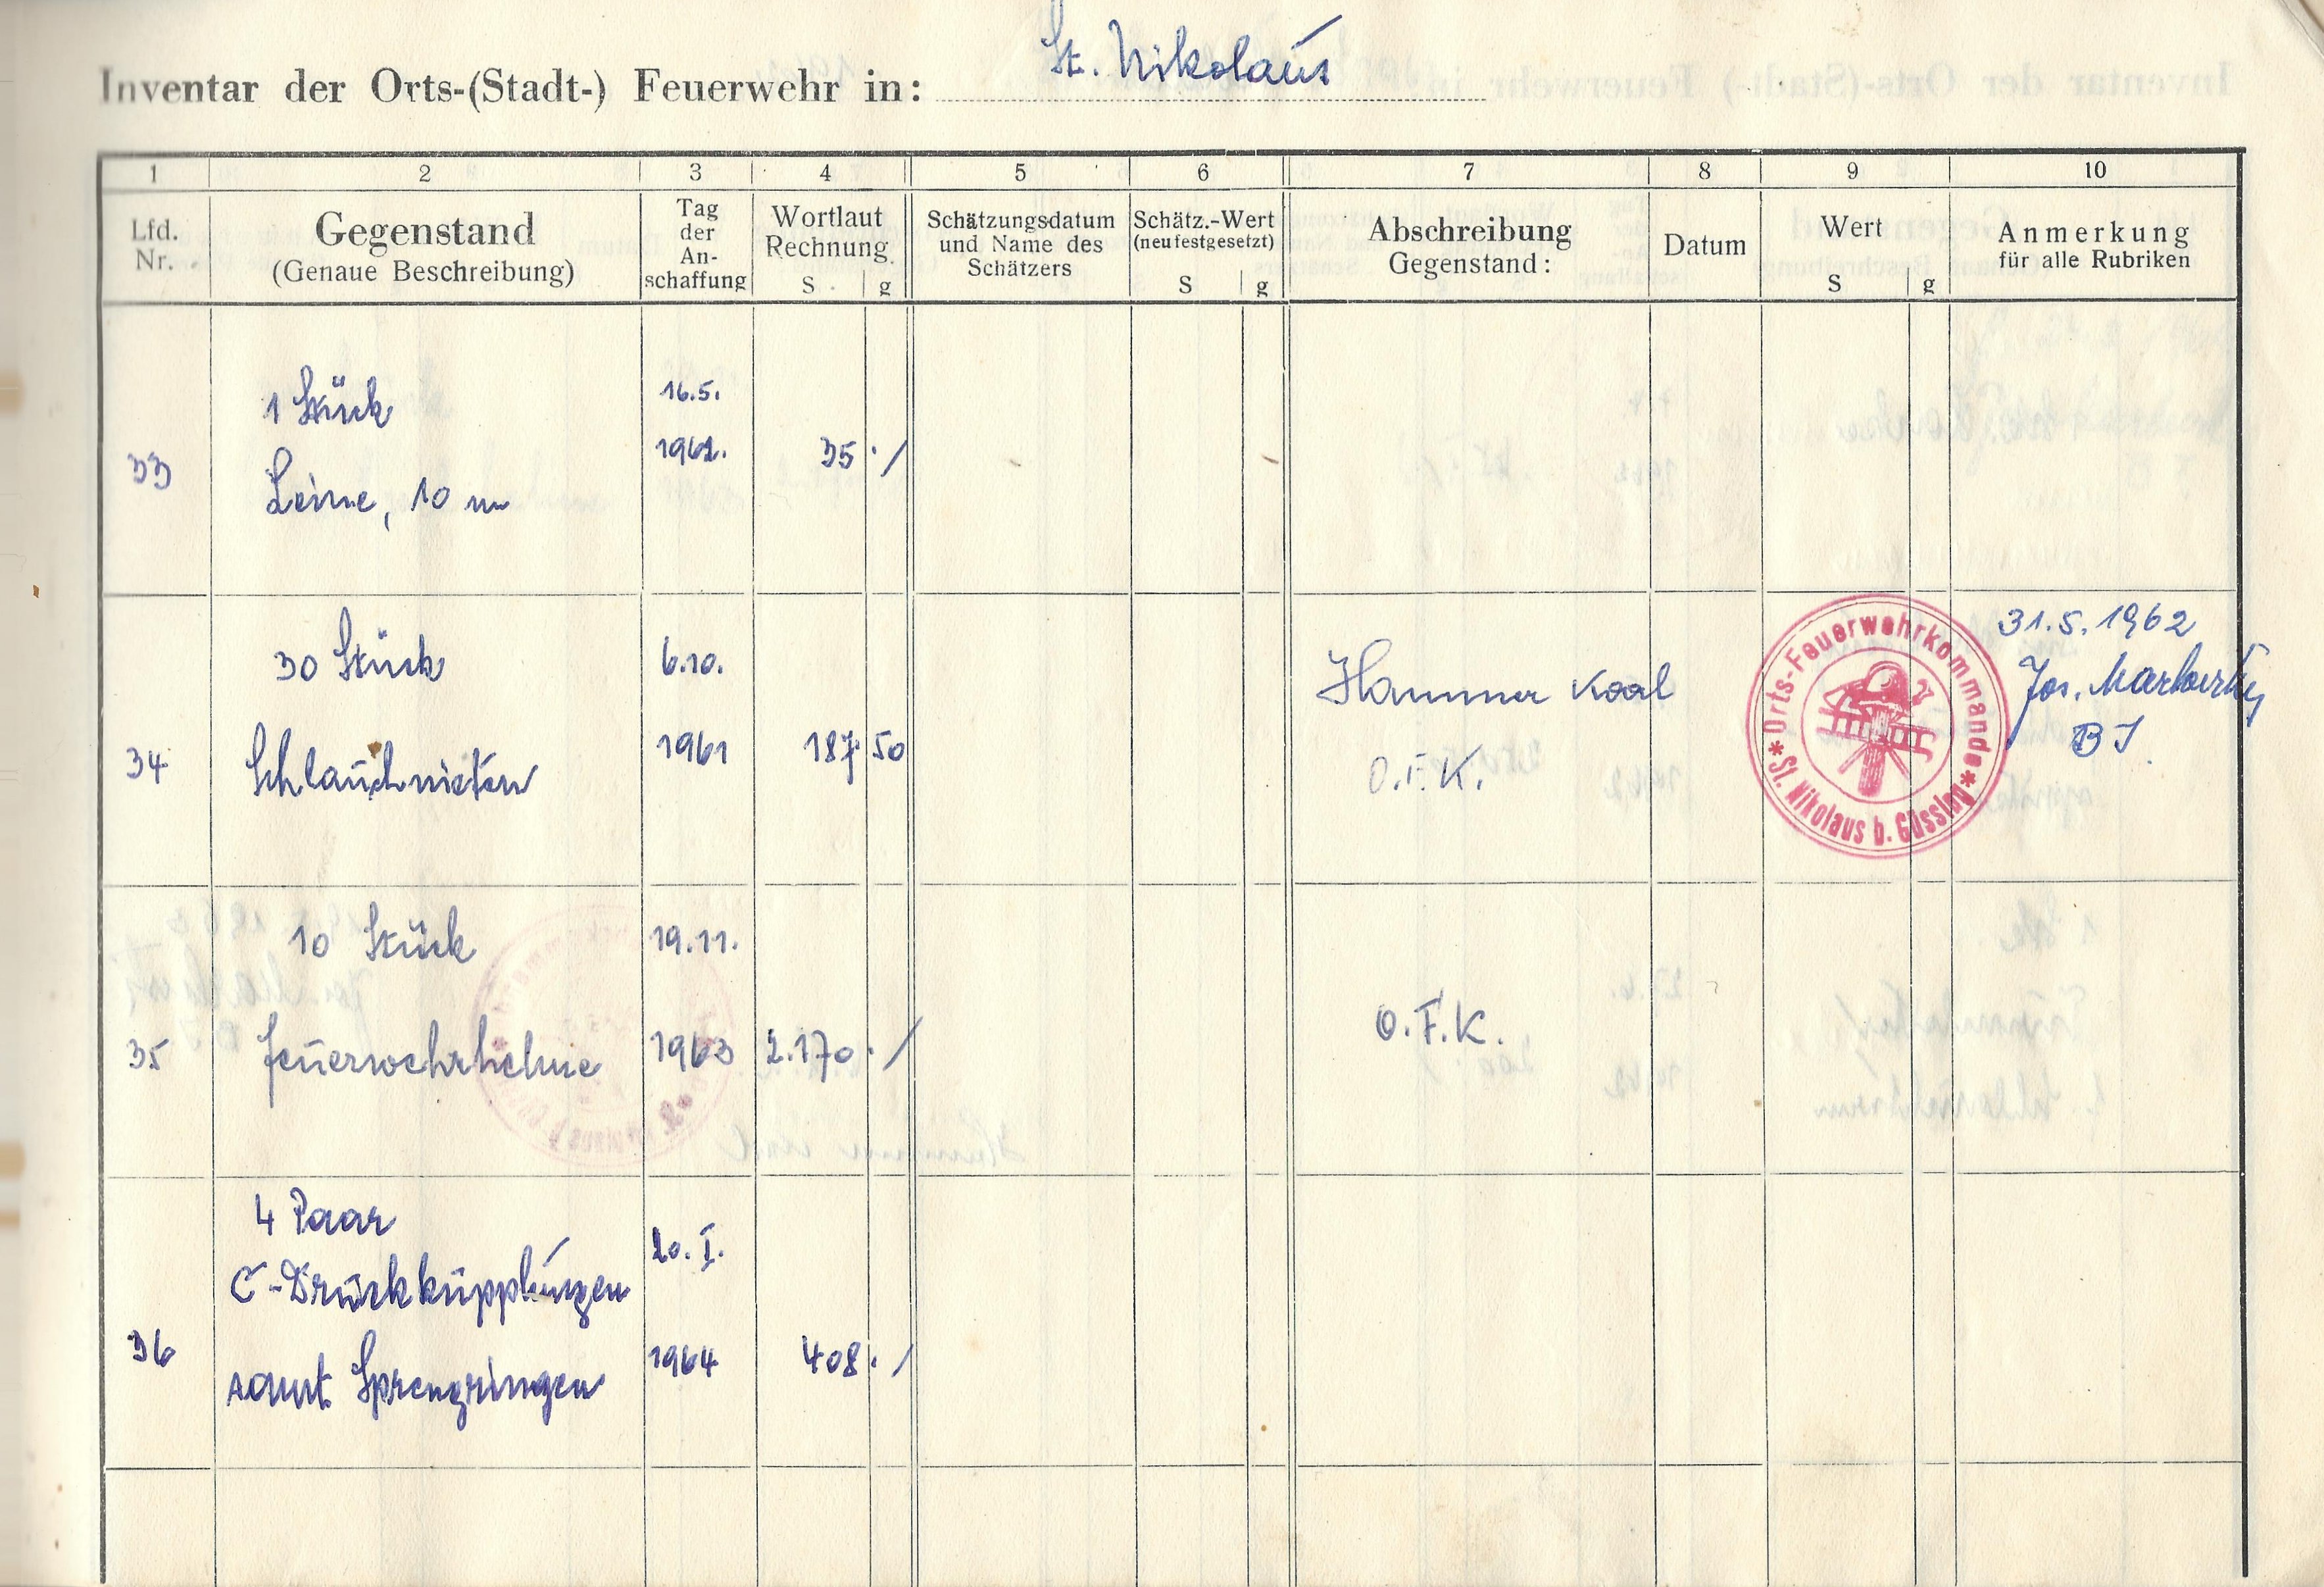 Inventar der Orts-(Stadt-) Feuerwehr in: St. Nikolaus
1 2 3 4 5 6 7 8 9 10
Lfd. Nr. Gegenstand (Genaue Beschreibung) Tag der An- schaffung Wortlaut Rechnung S g Schätzungsdatum und Name des Schätzers Schätz.-Wert (neufestgesetzt) S g Abschreibung Gegenstand: Datum Wert S g Anmerkung für alle Rubriken
33 1 Stück Leine, 10 m 16.5. 35 ·/
34 30 Stück Schlauchnieten 6.10. 1961 187 50 Hammer Karl O.F.K. 31.5.1962 Jos. BI.
Orts-Feuerwehrkommando
St. Nikolaus b. Güssing
35 10 Stück Feuerwehrhelme 19.11. 1963 2.170 ·/ O.F.K.
36 4 Paar C-Druckkupplungen samt Sprengringen 20. I. 1964 408 ·/